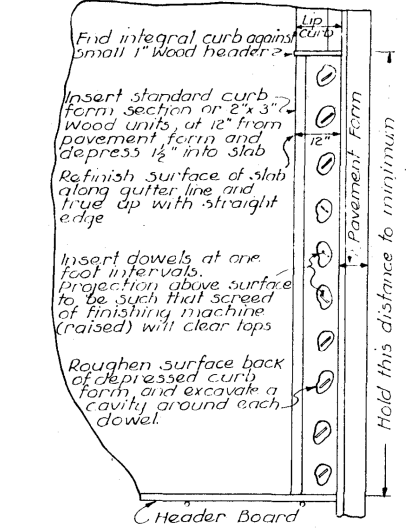 Lip
curb
End integral curb against
small 1" wood header
Insert standard curb
form section or 2"x 3"
wood units, at 12" from
pavement form and
depress 1½" into slab
12"
Refinish surface of slab
along gutter line and
true up with straight
edge
Insert dowels at one
foot intervals.
Projection above surface
to be such that screed
of finishing machine
(raised) will clear tops
Roughen surface back
of depressed curb
form and excavate a
cavity around each
dowel.
Pavement Form
Hold this distance to minimum
Header Board